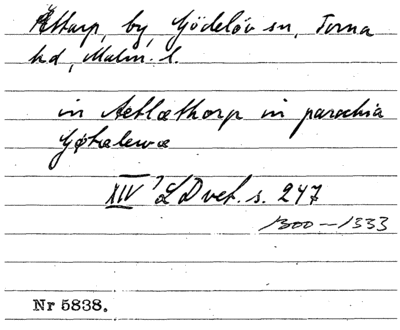 Ättarp, by, Gödelöv sn, Torna
hd, Malm. l.
in Aetlæthorp in parochia
Gøtælewæ
XIV ? LD vet. s. 247
1300—1333
Nr 5838.